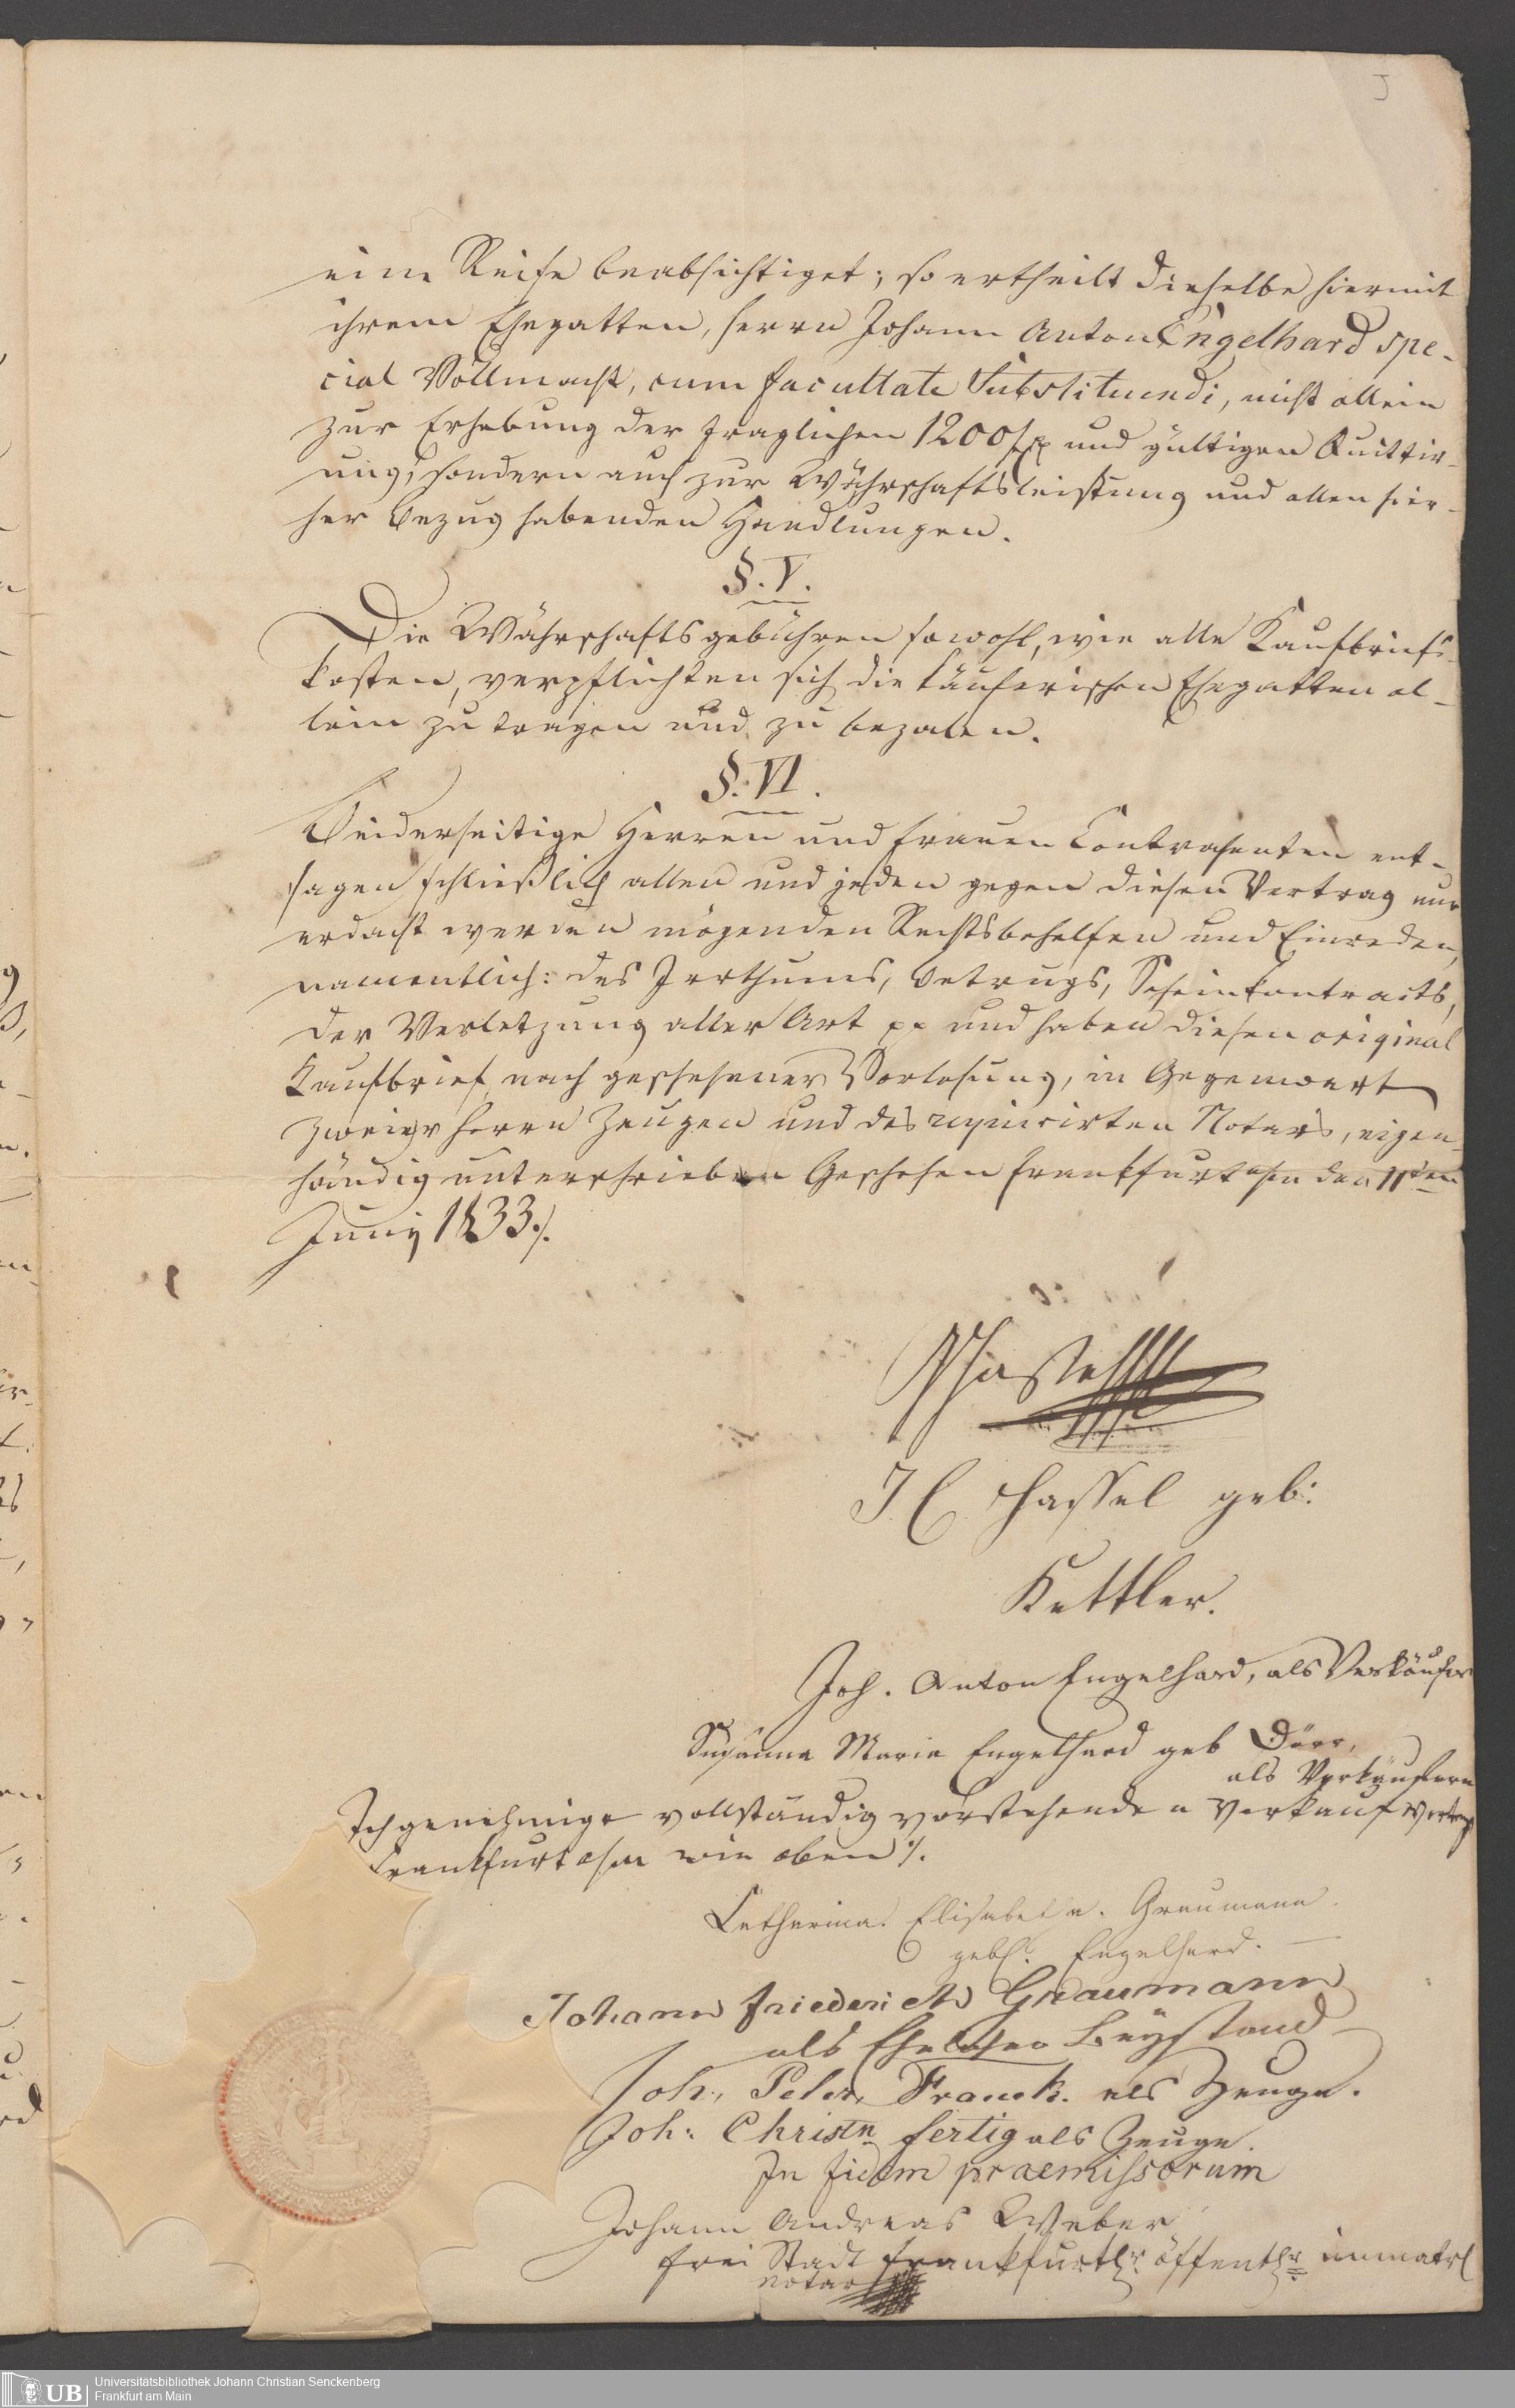 eine Reise beabsichtiget; so ertheilt dieselbe hiermit
ihrem Ehegatten, Herrn Johann Anton Engelhard spe-
cial Vollmacht, cum facultate Substituendi, nicht allein
zur Erhebung der fraglichen 1200 und gültigen Quittir-
ung, sondern auch zur Währschaftsleistung und allen hier-
her Bezug habenden Handlungen.
§. V.
Die Währschaftsgebühren sowohl, wie alle Kaufbriefs-
kosten, verpflichten sich die käuferischen Ehegatten al-
lein zu tragen und zu bezalen.
§. VI.
Beiderseitige Herren und Frauen Contrahenten ent-
sagen schließlich allen und jeden gegen diesen Vertrag nur
erdacht werden mögenden Rechtsbehelfen und Einreden,
namentlich: des Irrthums, Betrugs, Scheinkontracts,
der Verletzung aller Art pp und haben diesen original
Kaufbrief nach geschehener Vorlesung, in Gegenwart
zweier Herrn Zeugen und des requirirten Notars, eigen-
händig unterschrieben Geschehen Frankfurt a/m den 11ten
Juny 1833./.
J C Hassel geb:
Kettler.
Joh. Anton Engelhard, als Verkäufer
Susanna Maria Engelhard geb Dörr,
als Verkäufern
Ich genehmige vollständig vorstehenden Verkauf Vertrag
Frankfurt a/m wie oben ./.
Catharina. Elisabetha. Graumann
gebl. Engelhard.
Johann Friederich Graumann
als Ehelicher Beystand
Joh. Peter Franck. als Zeuge.
Joh: Christn Fertig als Zeuge.
In fidem praemissorum
Johann Andreas Weber
frei Stadt Frankfurtlr. öffentlr immatrl
Notar
UB Universitätsbibliothek Johann Christian Senckenberg
Frankfurt am Main